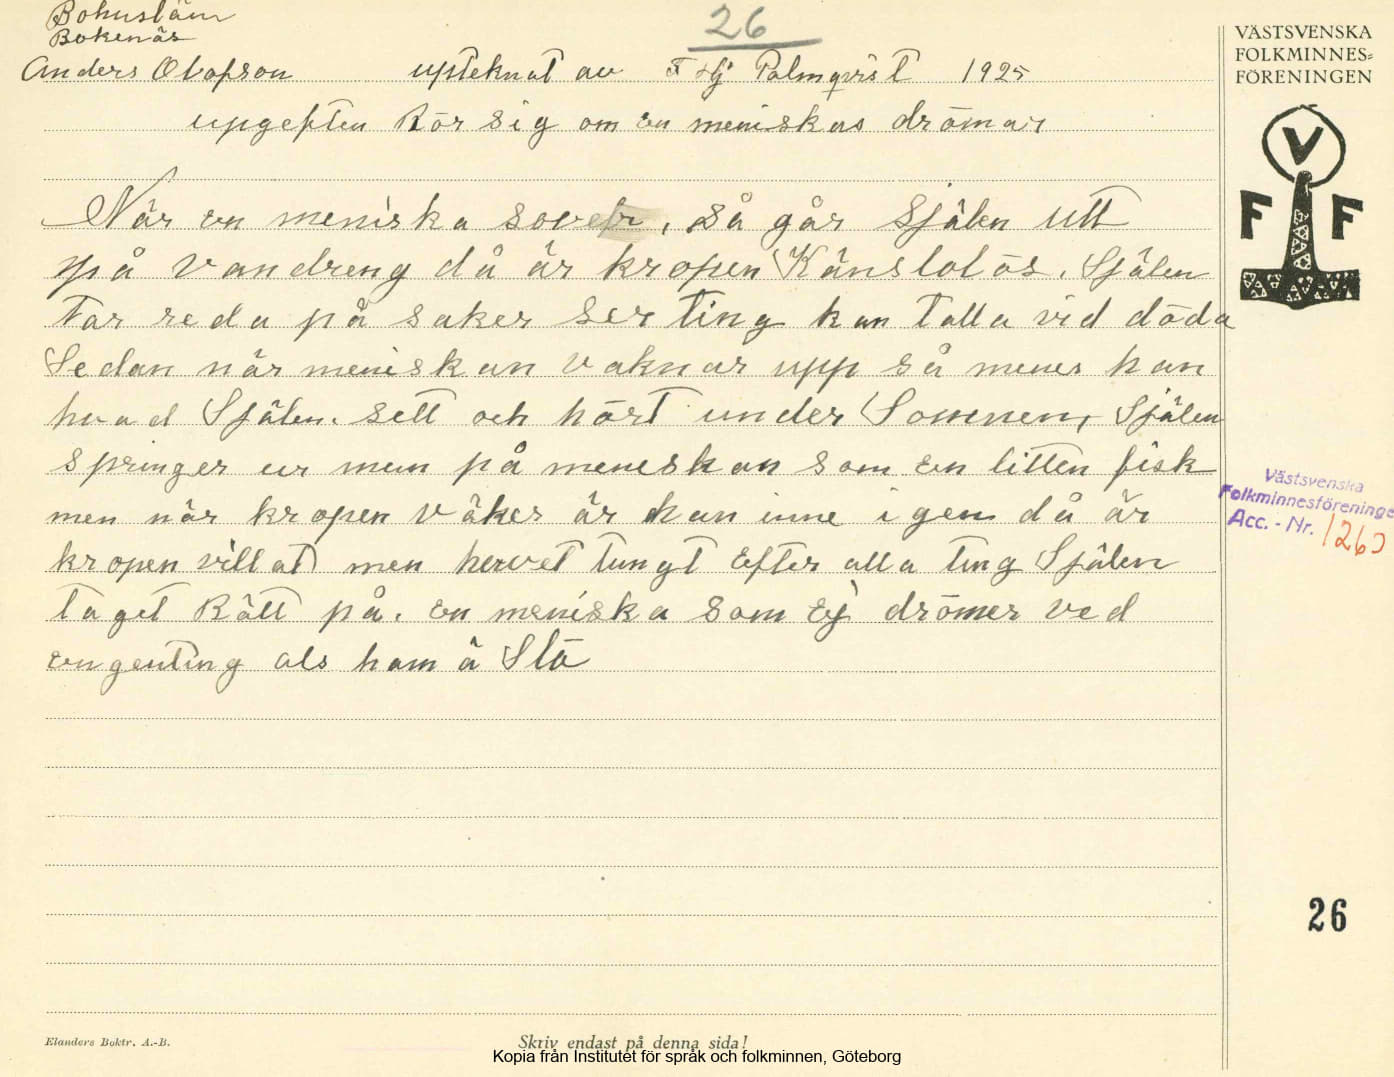 Bohuslän
Bokenäs
26
Anders Olofson upteknat av F Hj Palmqvist 1925
upgeften Rör sig om en meniskas drömar
När en meniska sover, så går Själen utt
på vandreng då är kropen Känslolös. Själen
tar reda på saker ser ting kan talla vid döda
Sedan när meniskan vaknar upp så menes han
hvad Själen. sett och hört under Somnen, Själen
springer ur mun på meneskan som en litten fisk
men när kropen väker är han inne igen då är
kropen villat men hervet tungt Efter alla ting Själen
taget Rätt på. en meniska som Ej drömer ved
engenting als ham ä Slö
VÄSTSVENSKA
FOLKMINNES=
FÖRENINGEN
V
F F
Västsvenska
Folkminnesföreninge
Acc. - Nr. 1260
26
Elanders Boktr. A.-B.
Skriv endast på denna sida!
Kopia från Institutet för språk och folkminnen, Göteborg